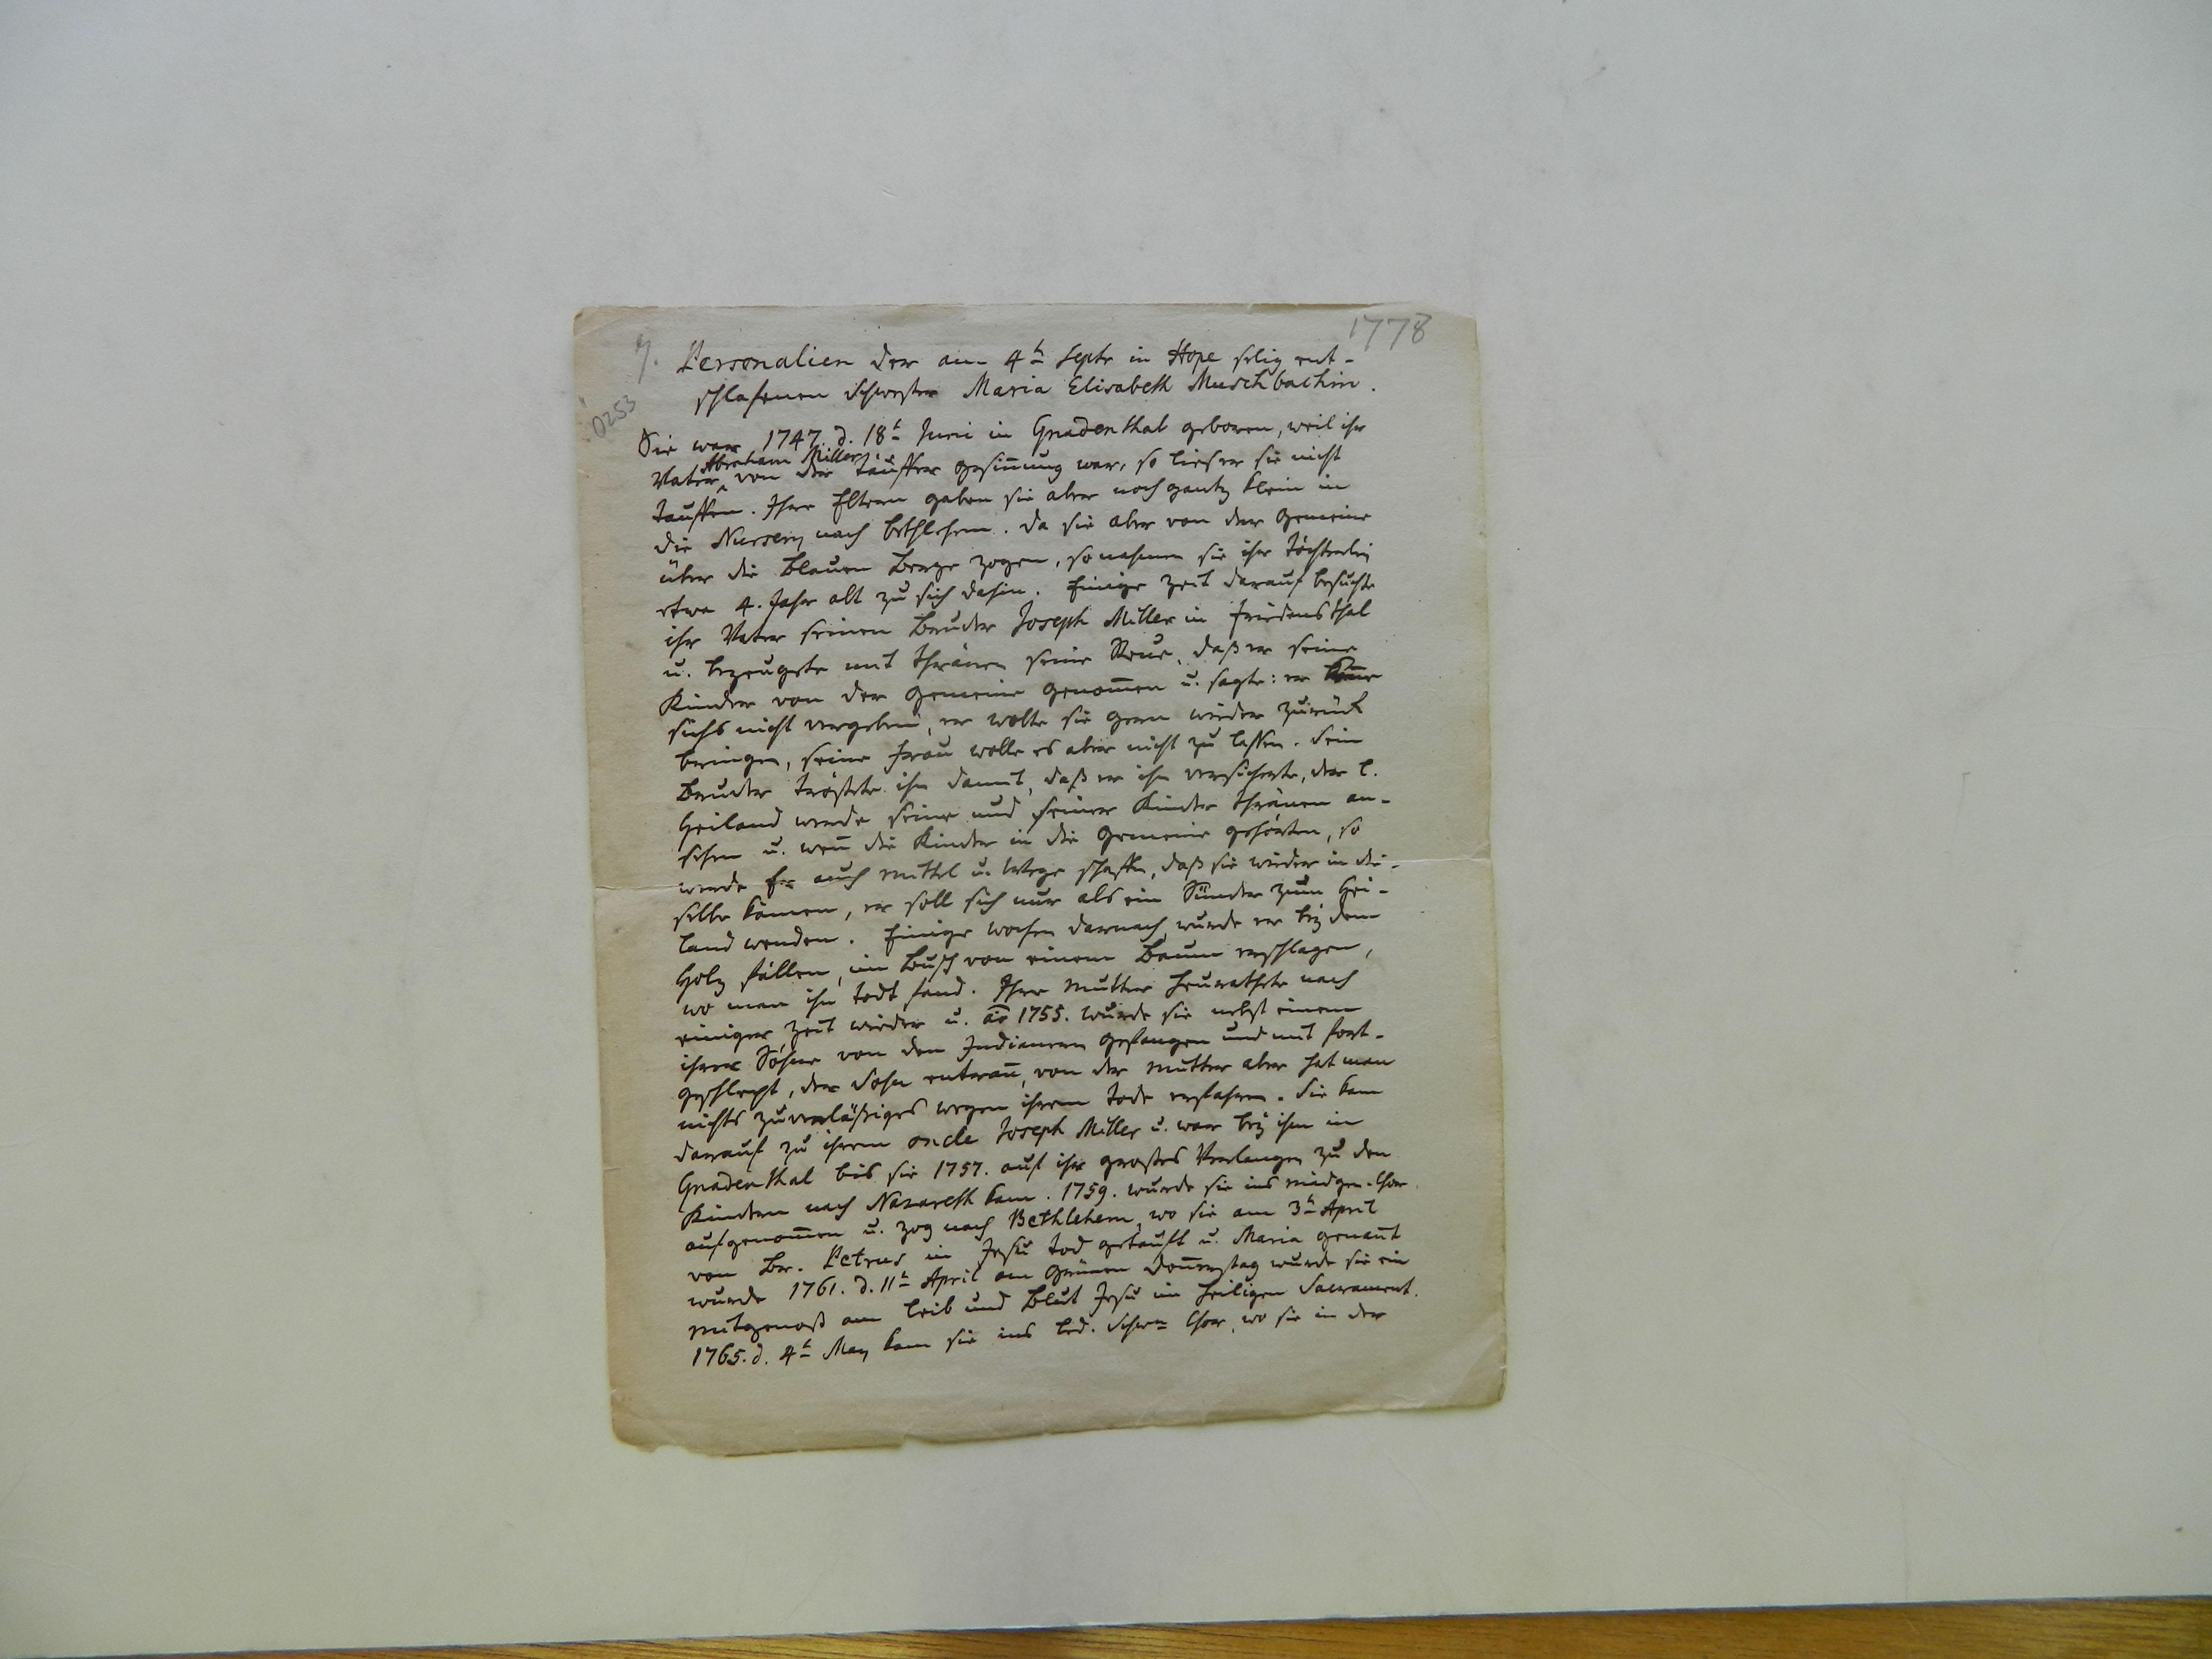 1778
9. Personalien der am 4t Septr in Hope selig ent-
schlafenen Schwester Maria Elisabeth Muschbachin.
0253
Sie war 1747. d. 18t Juni in Gnadenthal geboren, weil ihr
Abraham Miller
Vater von der Täuffer gesinnung war, so ließ er sie nicht
tauffen. Ihre Eltern gaben sie aber noch gantz klein in
die Nursery nach Bethlehem. Da sie aber von der Gemeine
über die Blauen Berge zogen, so nahmen sie ihr Töchterlein
etwa 4. Jahr alt zu sich dahin. Einige Zeit darauf besuchte
ihr Vater seinen Bruder Joseph Miller in Friedensthal
u. bezeugete mit Thränen seine Reue, daß er seine
Kinder von der Gemeine genom̄en u. sagte: er
sichs nicht vergeben, er wolte sie gern wieder zurück
bringen, seine Frau wolle es aber nicht zu lassen. Sein
Bruder tröstete ihn damit, daß er ihn versicherte, der l.
Heiland werde seine und seiner Kinder Thränen an-
sehen u. wen̄ die Kinder in die Gemeine gehörten, so
werde Er auch Mittel u. Wege schaffen, daß sie wieder in die-
selbe kämen, er soll sich nur als ein Sünder zum Hei-
land wenden. Einige Wochen darnach wurde er bey dem
Holz fällen, im Busch von einem Baum erschlagen,
wo man ihn todt fand. Ihre Mutter heurathete nach
einiger Zeit wieder u. ao 1755. wurde sie nebst einem
ihrer Söhne von den Indianern gefangen und mit fort-
geschlept, der Sohn entran̄, von der Mutter aber hat man
nichts zuverläßiges wegen ihrem Tode erfahren. Sie kam
darauf zu ihrem oncle Joseph Miller u. war bey ihm in
Gnadenthal bis sie 1757. auf ihr großes Verlangen zu den
Kindern nach Nazareth kam. 1759. wurde sie ins Mädgen-Chor
aufgenom̄en u. zog nach Bethlehem, wo sie am 3t April
von Br. Petrus in Jesu Tod getauft u. Maria genan̄t
wurde 1761. d. 11t April am Grünen Don̄erstag wurde sie ein
Mitgenoß am Leib und Blut Jesu im heiligen Sacrament.
1765. d. 4t May kam sie ins led. Schwn Chor, wo sie in der